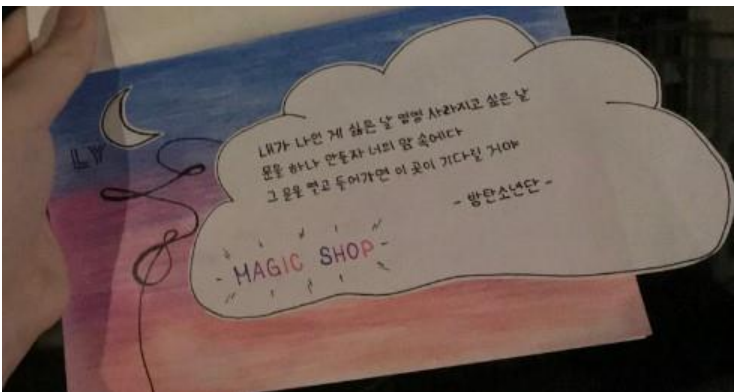 LY
내가 나인 게 싫은 날 영영 사라지고 싶은 날
문을 하나 만들자 너의 맘 속에다
그 문을 열고 들어가면 이 곳이 기다릴 거야
- 방탄소년단 -
- MAGIC SHOP -